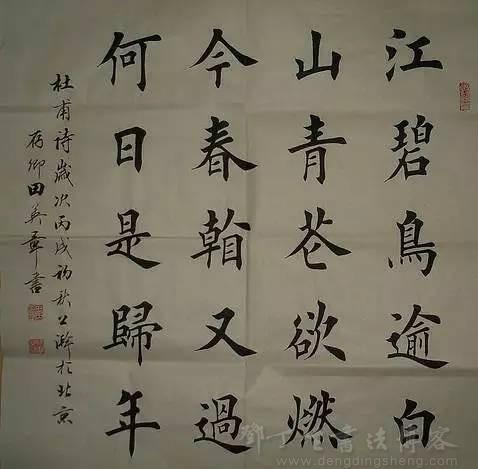 江碧鳥逾白
山青花欲燃
今春看又過
何日是歸年
杜甫詩歲次丙戌初秋上澣於北京
存卿田英章書
鄧丁生書法博客
www.dengdingsheng.com